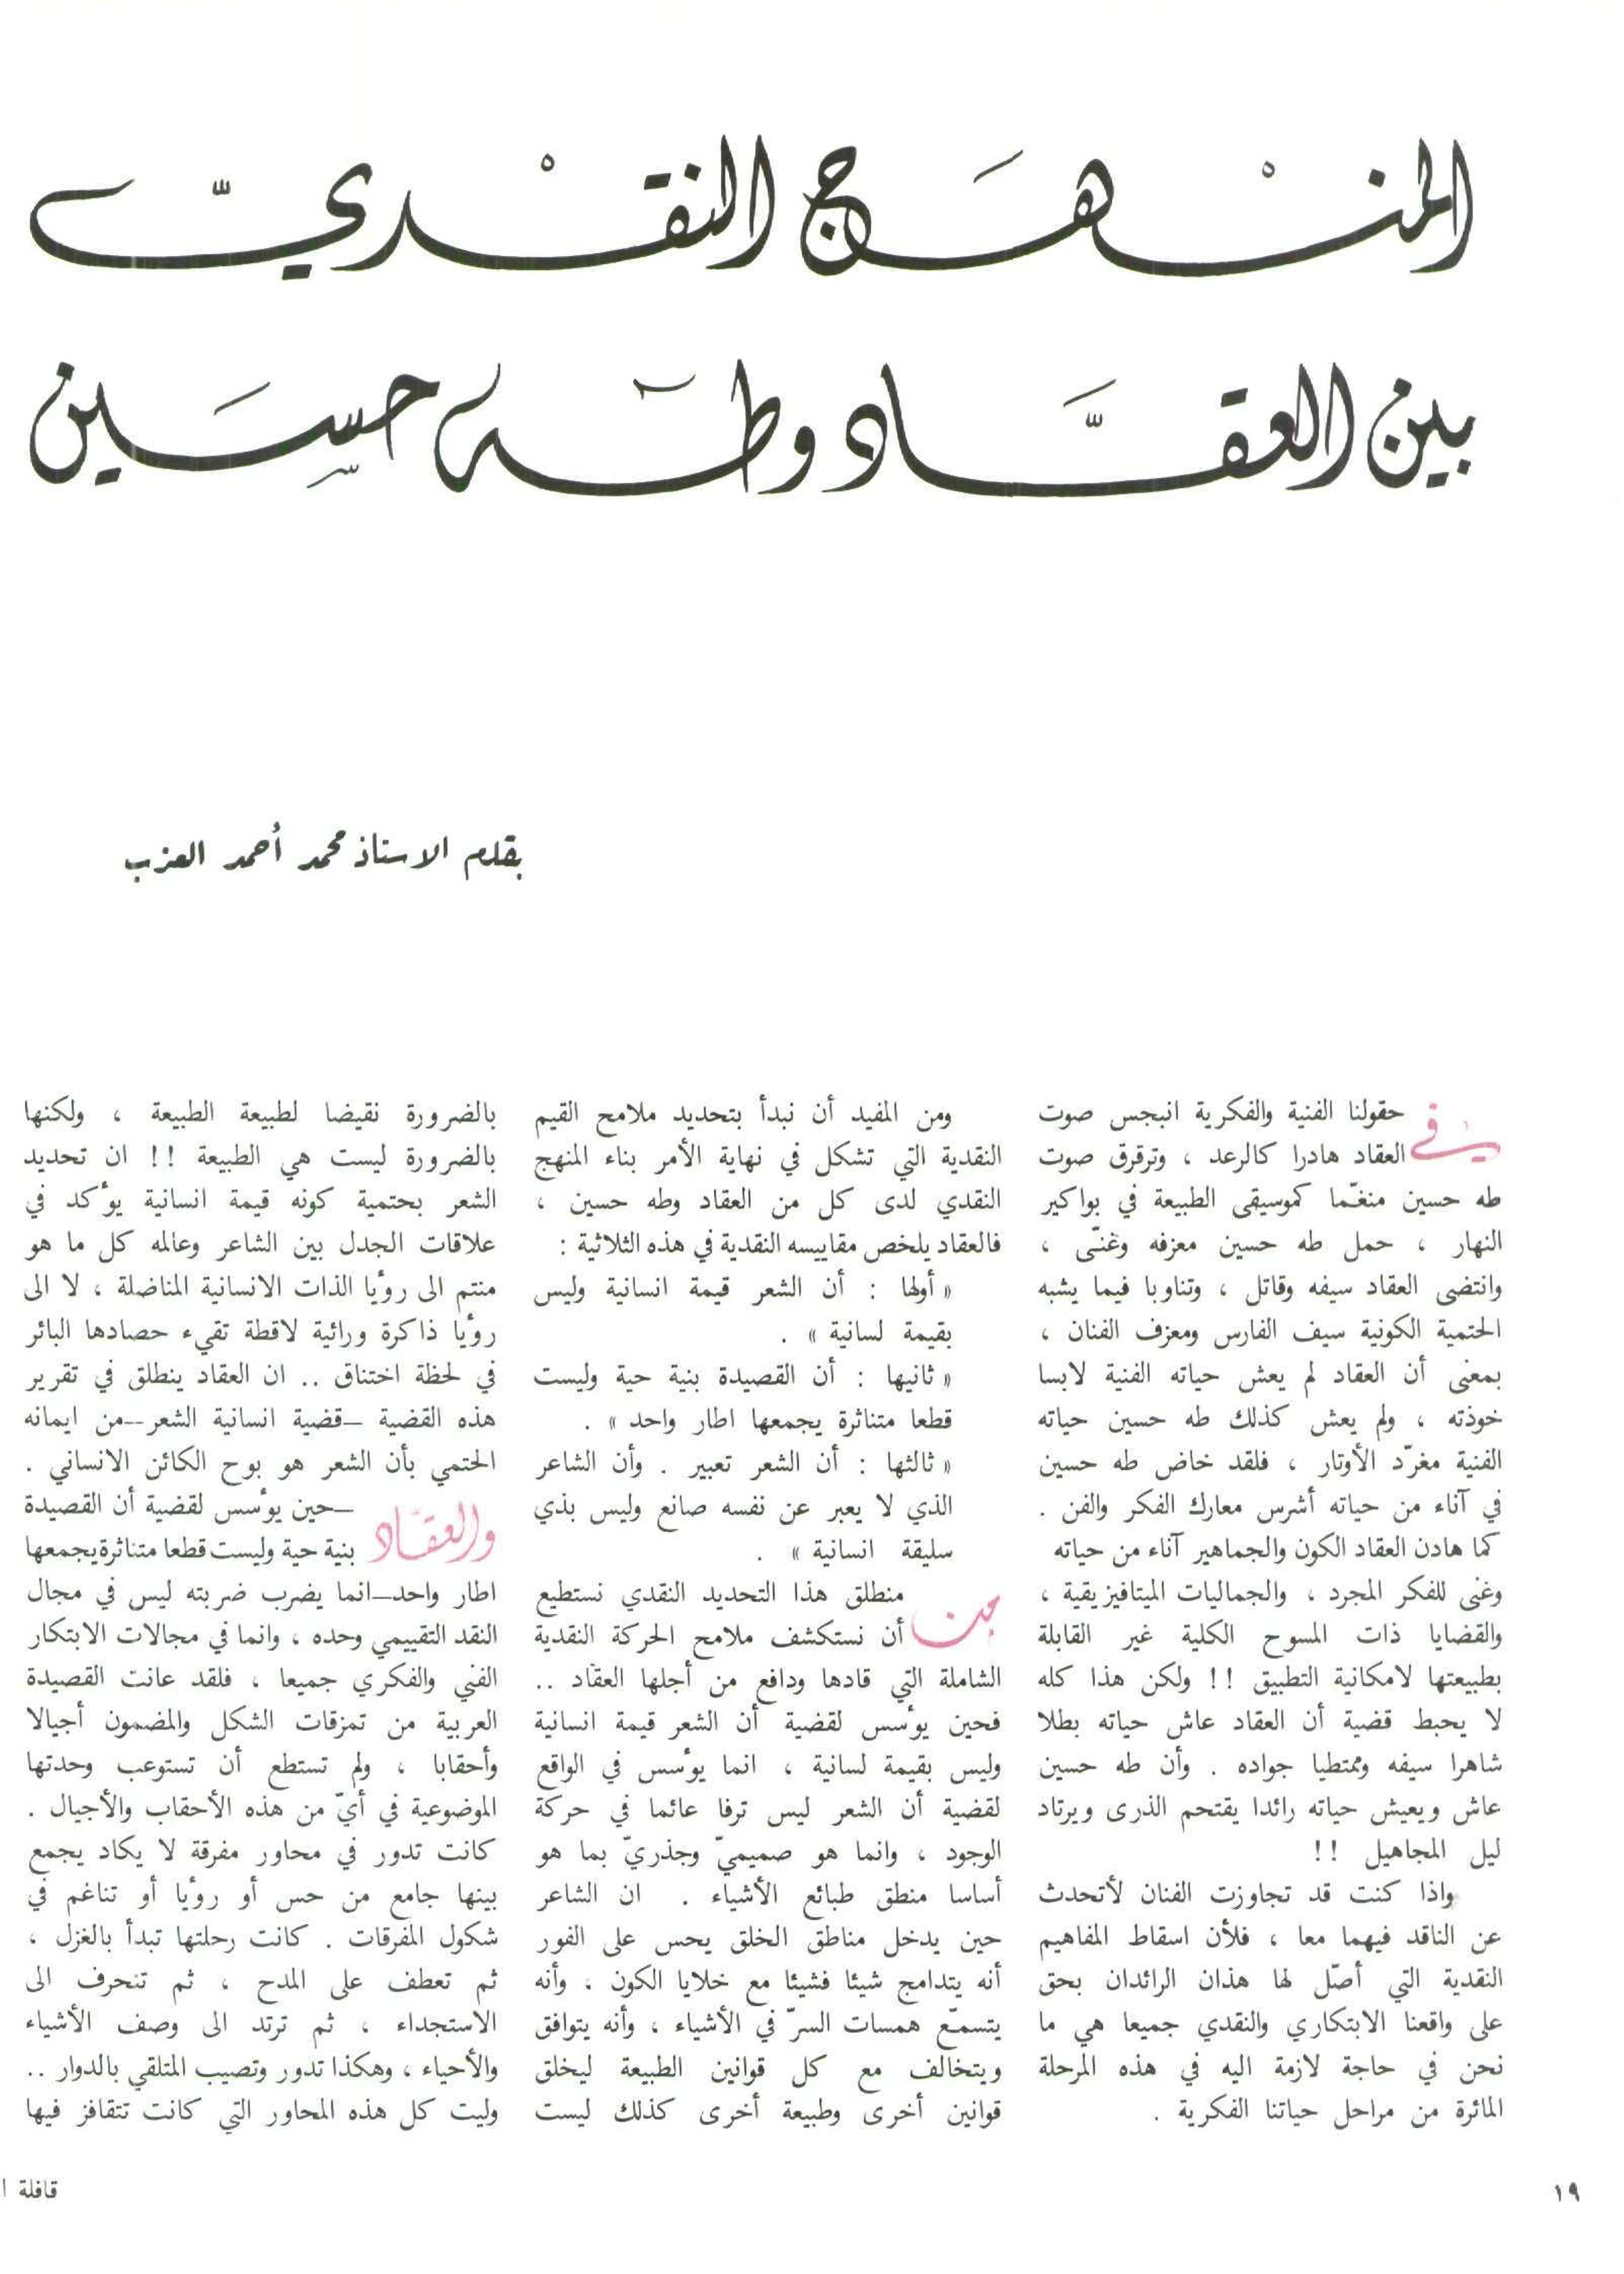 المنْهَج النقْديّ
بين العقَّاد وطٓه حسَين
بقلم الاستاذ محمد أحمد العزب
في حقولنا الفنية والفكرية انبجس صوت
العقاد هادرا كالرعد ، وترقرق صوت
طه حسين منغّما كموسيقى الطبيعة في بواكير
النهار ، حمل طه حسين معزفه وغنّى ،
وانتضى العقاد سيفه وقاتل ، وتناوبا فيما يشبه
الحتمية الكونية سيف الفارس ومعزف الفنان ،
بمعنى أن العقاد لم يعش حياته الفنية لابسا
خوذته ، ولم يعش كذلك طه حسين حياته
الفنية مغرّد الأوتار ، فلقد خاض طه حسين
في آناء من حياته أشرس معارك الفكر والفن .
كما هادن العقاد الكون والجماهير آناء من حياته
وغنى للفكر المجرد ، والجماليات الميتافيزيقية ،
والقضايا ذات المسوح الكلية غير القابلة
بطبيعتها لامكانية التطبيق !! ولكن هذا كله
لا يحبط قضية أن العقاد عاش حياته بطلا
شاهرا سيفه وممتطيا جواده . وأن طه حسين
عاش ويعيش حياته رائدا يقتحم الذرى ويرتاد
ليل المجاهيل !!
واذا كنت قد تجاوزت الفنان لأتحدث
عن الناقد فيهما معا ، فلأن اسقاط المفاهيم
النقدية التي أصّل لها هذان الرائدان بحق
على واقعنا الابتكاري والنقدي جميعا هي ما
نحن في حاجة لازمة اليه في هذه المرحلة
المائرة من مراحل حياتنا الفكرية .
ومن المفيد أن نبدأ بتحديد ملامح القيم
النقدية التي تشكل في نهاية الأمر بناء المنهج
النقدي لدى كل من العقاد وطه حسين ،
فالعقاد يلخص مقاييسه النقدية في هذه الثلاثية :
« أولها : أن الشعر قيمة انسانية وليس
بقيمة لسانية » .
« ثانيها : أن القصيدة بنية حية وليست
قطعا متناثرة يجمعها اطار واحد » .
« ثالثها : أن الشعر تعبير . وأن الشاعر
الذي لا يعبر عن نفسه صانع وليس بذي
سليقة انسانية » .
من منطلق هذا التحديد النقدي نستطيع
أن نستكشف ملامح الحركة النقدية
الشاملة التي قادها ودافع من أجلها العقاد ..
فحين يؤسس لقضية أن الشعر قيمة انسانية
وليس بقيمة لسانية ، انما يؤسس في الواقع
لقضية أن الشعر ليس ترفا عائما في حركة
الوجود ، وانما هو صميميّ وجذريّ بما هو
أساسا منطق طبائع الأشياء . ان الشاعر
حين يدخل مناطق الخلق يحس على الفور
أنه يتدامج شيئا فشيئا مع خلايا الكون ، وأنه
يتسمّع همسات السرّ في الأشياء ، وأنه يتوافق
ويتخالف مع كل قوانين الطبيعة ليخلق
قوانين أخرى وطبيعة أخرى كذلك ليست
بالضرورة نقيضا لطبيعة الطبيعة ، ولكنها
بالضرورة ليست هي الطبيعة !! ان تحديد
الشعر بحتمية كونه قيمة انسانية يؤكد في
علاقات الجدل بين الشاعر وعالمه كل ما هو
منتم الى رؤيا الذات الانسانية المناضلة ، لا الى
رؤيا ذاكرة ورائية لاقطة تقيء حصادها البائر
في لحظة اختناق .. ان العقاد ينطلق في تقرير
هذه القضية –قضية انسانية الشعر–من ايمانه
الحتمي بأن الشعر هو بوح الكائن الانساني .
والعقّاد –حين يؤسس لقضية أن القصيدة
بنية حية وليست قطعا متناثرة يجمعها
اطار واحد–انما يضرب ضربته ليس في مجال
النقد التقييمي وحده ، وانما في مجالات الابتكار
الفني والفكري جميعا ، فلقد عانت القصيدة
العربية من تمزقات الشكل والمضمون أجيالا
وأحقابا ، ولم تستطع أن تستوعب وحدتها
الموضوعية في أيّ من هذه الأحقاب والأجيال .
كانت تدور في محاور مفرقة لا يكاد يجمع
بينها جامع من حس أو رؤيا أو تناغم في
شكول المفرقات . كانت رحلتها تبدأ بالغزل ،
ثم تعطف على المدح ، ثم تنحرف الى
الاستجداء ، ثم ترتد الى وصف الأشياء
والأحياء ، وهكذا تدور وتصيب المتلقي بالدوار ..
وليت كل هذه المحاور التي كانت تتقافز فيها
١٩
قافلة ا